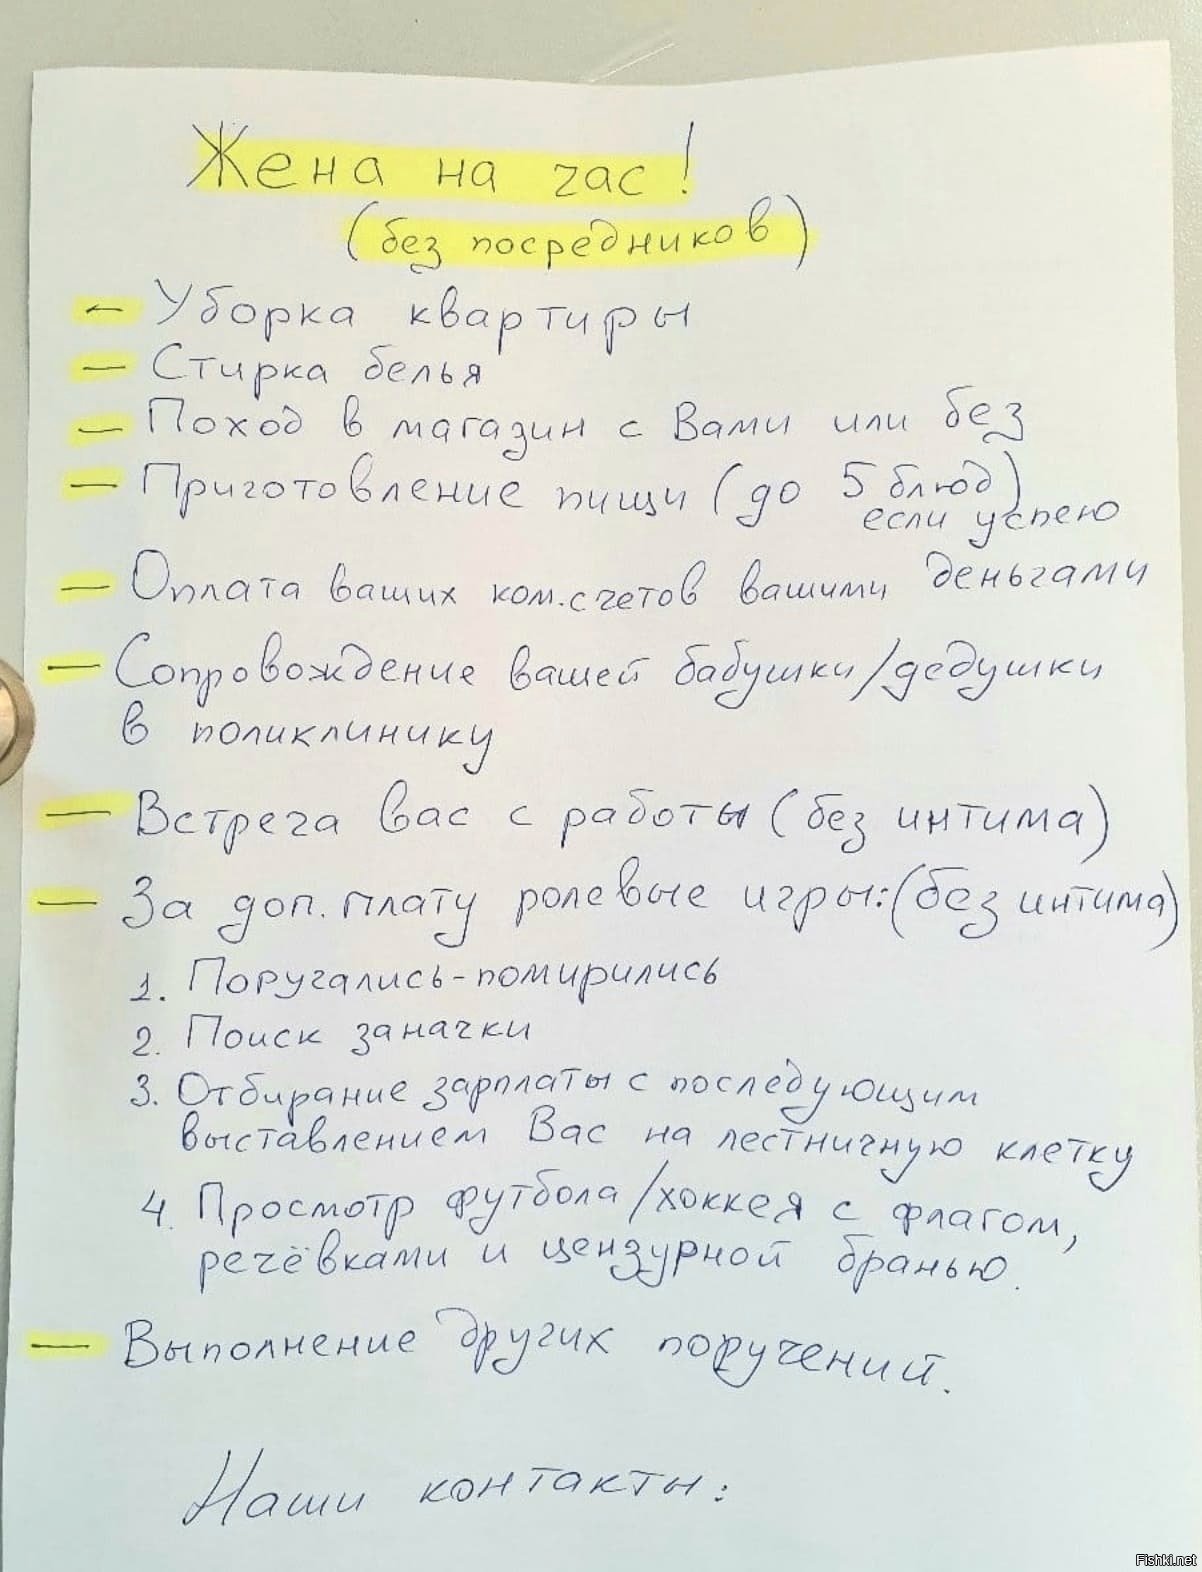 Жена на час!
(без посредников)
— Уборка квартиры
— Стирка белья
— Поход в магазин с Вами или без
— Приготовление пищи (до 5 блюд)
если успею
— Оплата ваших ком.счетов вашими деньгами
— Сопровождение вашей бабушки/дедушки
в поликлинику
— Встреча вас с работы (без интима)
— За доп. плату ролевые игры: (без интима)
1. Поругались-помирились
2. Поиск заначки
3. Отбирание зарплаты с последующим
выставлением Вас на лестничную клетку
4. Просмотр футбола/хоккея с флагом,
речёвками и цензурной бранью.
— Выполнение других поручений.
Наши контакты:
Fishki.net